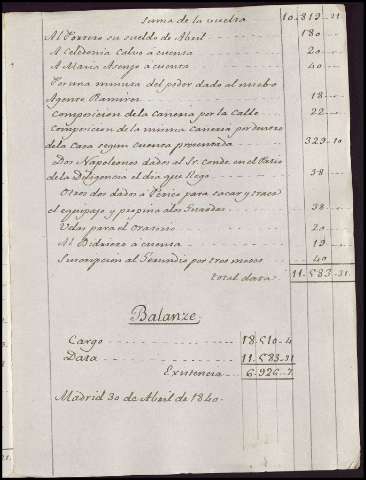 Suma de la vuelta 10.819..21
Al Portero su sueldo de Abril 180
A Celedonia Calvo a cuenta 20
A Maria Asenjo a cuenta 40
Por una minuta del poder dado al nuebo
Agente Ramirez 18
Composicion de la cañeria por la Calle 22
Composicion de la misma cañeria por dentro
de la Casa segun cuenta presentada 329..10
Dos Napoleones dados al Sr. Conde en el Patio
de la Diligencia el dia que llego 38
Otros dos dados a para sacar y traer
el equipaje y propina a los Guardas 38
Velas para el Oratorio 20
Al Vidriero a cuenta 19
Suscripcion al Gerundio por tres meses 40
Total data 11.583..31
Balanze
Cargo 18.510..4
Data 11.583..31
Existencia 6.926..7
Madrid 30 de Abril de 1840